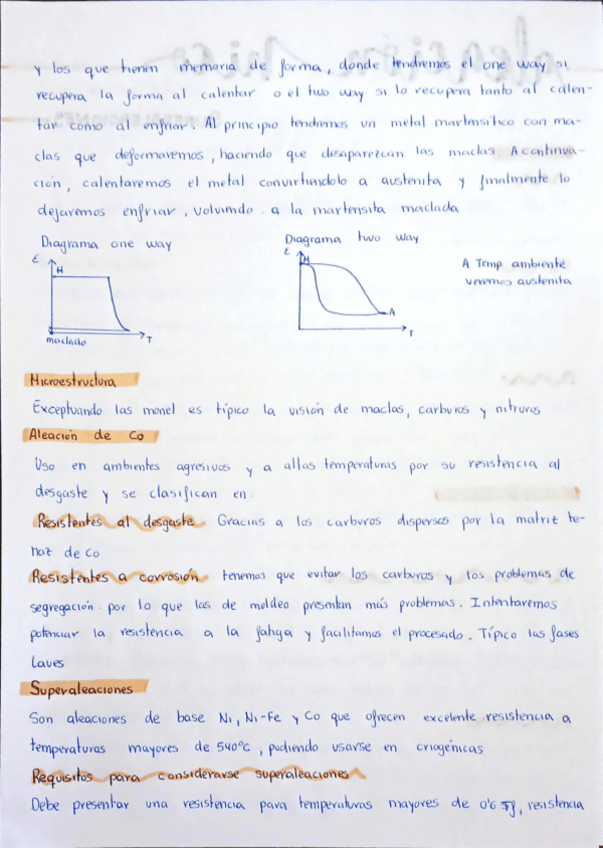 y los que tienen memoria de forma, donde tendremos el one way si
recupera la forma al calentar o el two way si lo recupera tanto al calen-
tar como al enfriar. Al principio tendremos un metal martensítico con ma-
clas que deformaremos, haciendo que desaparezcan las maclas. A continua-
ción, calentaremos el metal convirtiéndolo a austenita y finalmente lo
dejaremos enfriar, volviendo a la martensita maclada
Diagrama one way
Diagrama two way
A Temp ambiente
veremos austenita
ε
M
maclado
T
ε
M
A
T
Microestructura
Exceptuando las monel es típico la visión de maclas, carburos y nitruros
Aleación de Co
Uso en ambientes agresivos y a altas temperaturas por su resistencia al
desgaste y se clasifican en:
Resistentes al desgaste Gracias a los carburos dispersos por la matriz te-
naz de Co
Resistentes a corrosión tenemos que evitar los carburos y los problemas de
segregación por lo que las de moldeo presentan más problemas. Intentaremos
potenciar la resistencia a la fatiga y facilitamos el procesado. Típico las fases
Laves
Superaleaciones
Son aleaciones de base Ni, Ni-Fe y Co que ofrecen excelente resistencia a
temperaturas mayores de 540ºC, pudiendo usarse en criogénicas
Requisitos para considerarse superaleaciones
Debe presentar una resistencia para temperaturas mayores de 0'6 Tf, resistencia